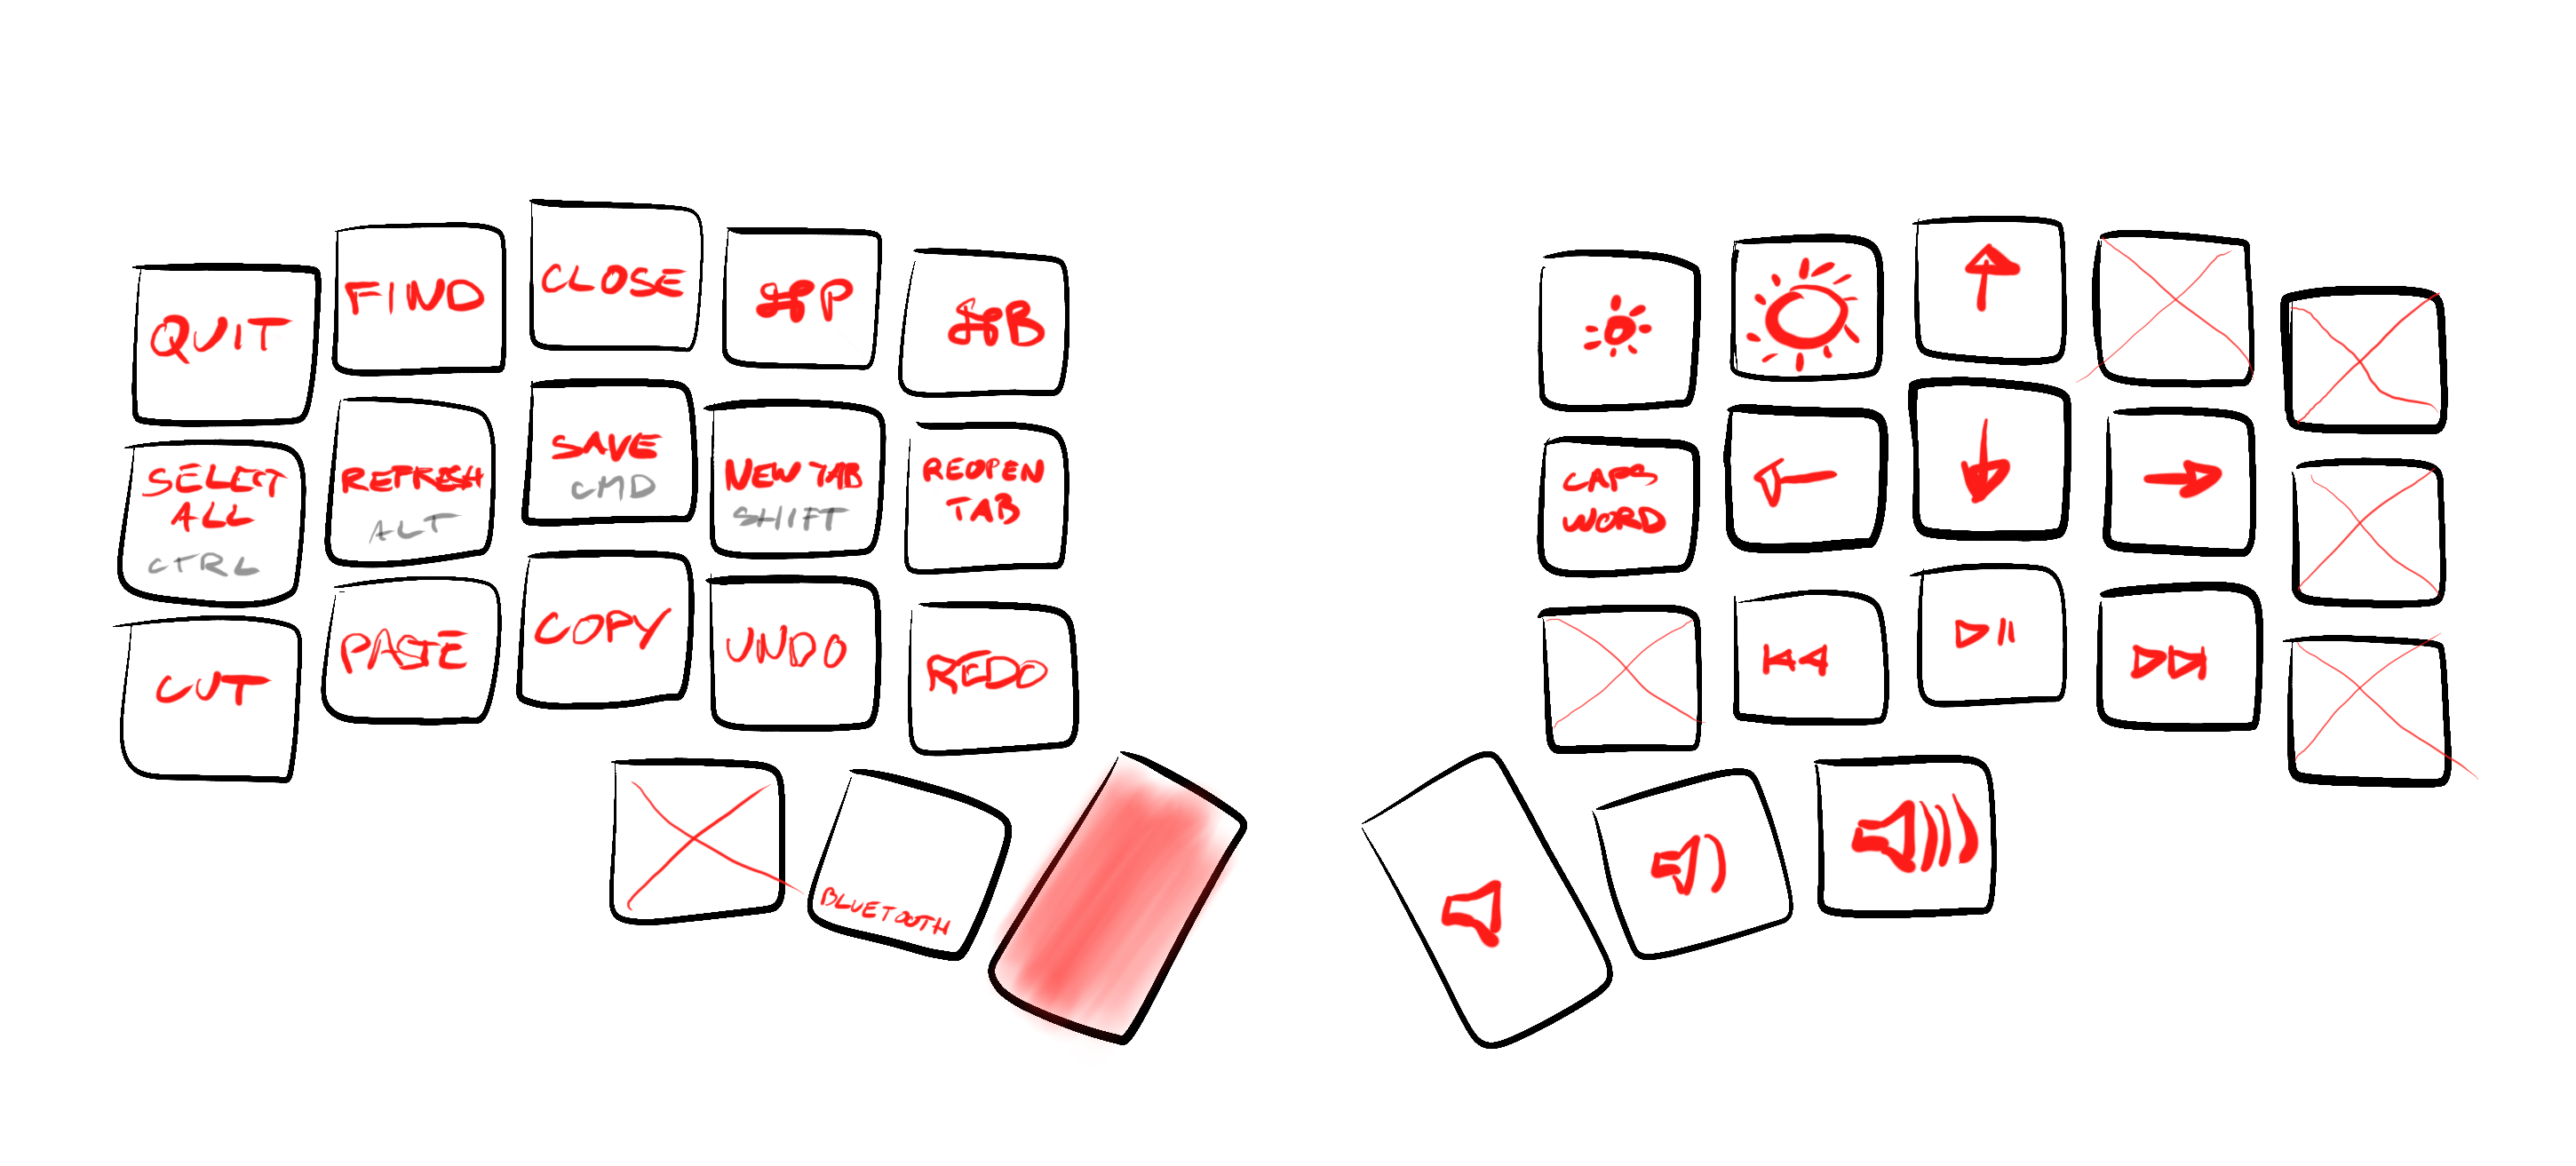 QUIT
FIND
CLOSE
⌘P
⌘B
SELECT
ALL
CTRL
REFRESH
ALT
SAVE
CMD
NEW TAB
SHIFT
REOPEN
TAB
CAPS
WORD
CUT
PASTE
COPY
UNDO
REDO
BLUETOOTH